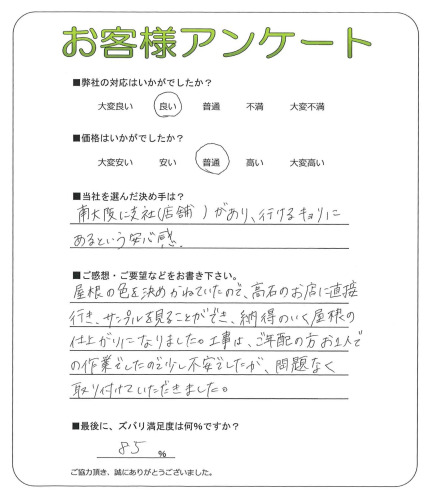 お客様アンケート
■弊社の対応はいかがでしたか？
大変良い　良い　普通　不満　大変不満
■価格はいかがでしたか？
大変安い　安い　普通　高い　大変高い
■当社を選んだ決め手は？
南大阪に支社(店舗)があり、行けるキョリに
あるという安心感.
■ご感想・ご要望などをお書き下さい。
屋根の色を決めかねていたので、高石のお店に直接
行き、サンプルを見ることができ、納得のいく屋根の
仕上がりになりました。工事は、ご年配の方お1人で
の作業でしたので少し不安でしたが、問題なく
取り付けていただきました。
■最後に、ズバリ満足度は何%ですか？
85 %
ご協力頂き、誠にありがとうございました。